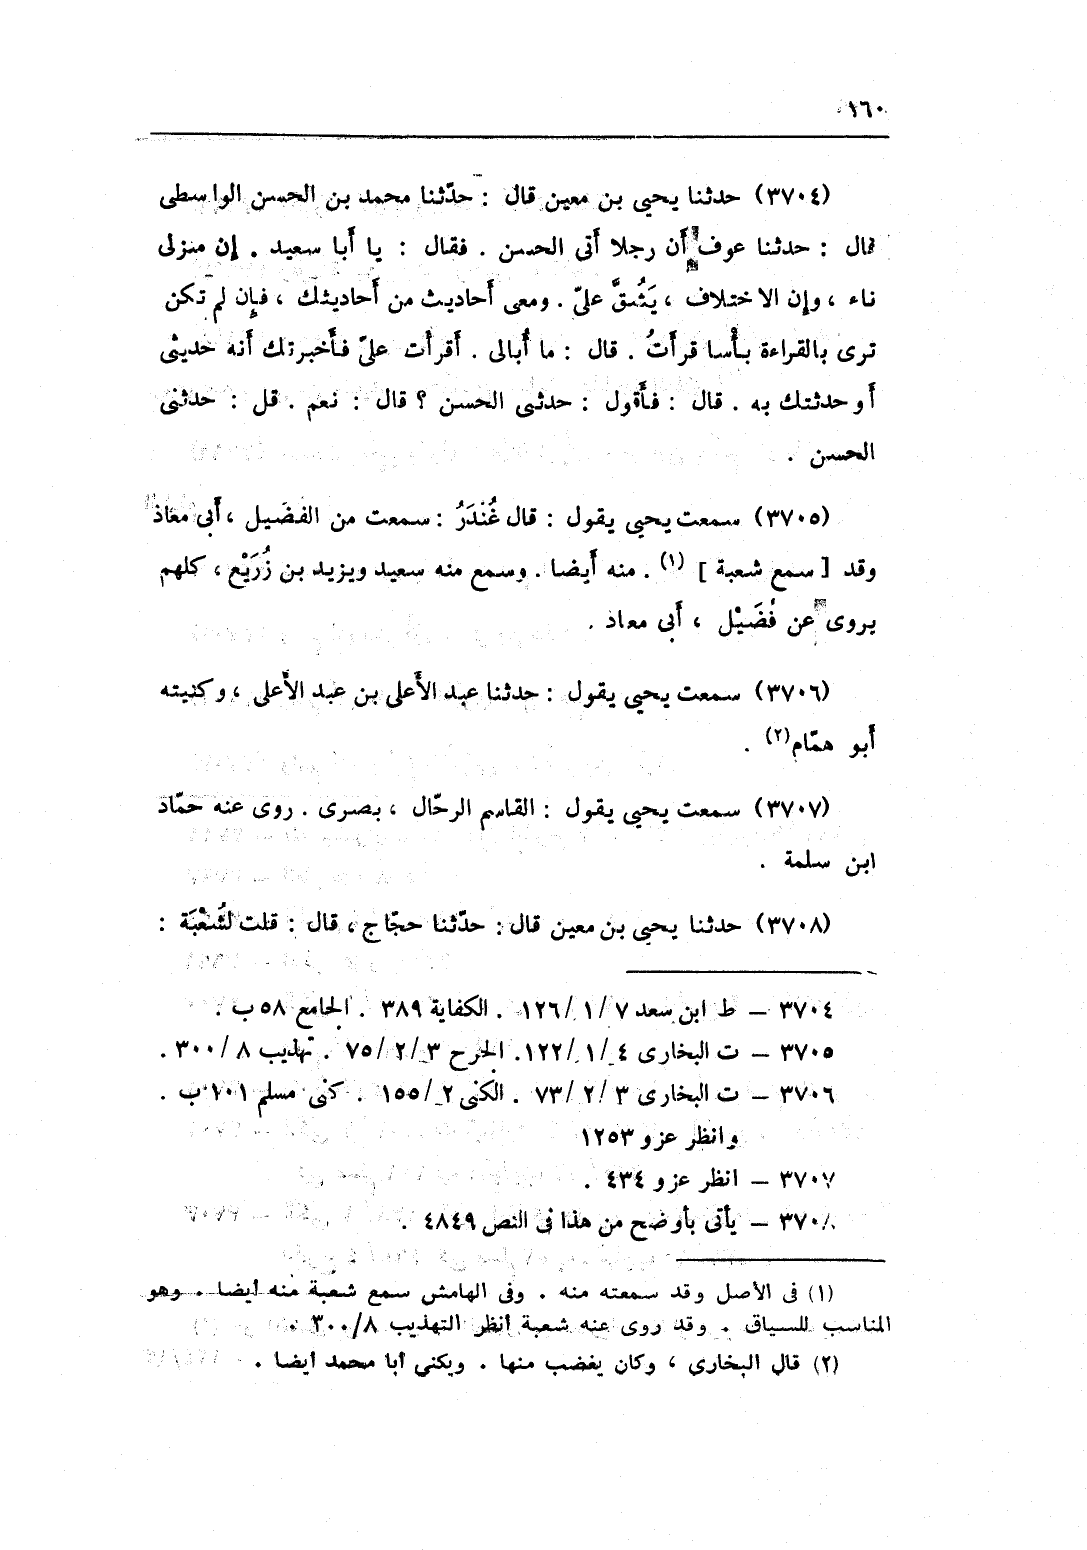 ١٦٠
(٣٧٠٤) حدثنا يحيى بن معين قال : حدّثنا محمد بن الحسن الواسطى
قال : حدثنا عوف أن رجلا أتى الحسن . فقال : يا أبا سعيد . إن منزلى
ناء ، وإن الاختلاف ، يَشُقَّ علىّ . ومعى أحاديث من أحاديثك ، فإن لم تكن
ترى بالقراءة بأسا قرأتُ . قال : ما أُبالى . أقرأت علىّ فأخبرتك أنه حديثى
أو حدثتك به . قال : فأقول : حدثنى الحسن ؟ قال : نعم . قل : حدثنى
الحسن .
(٣٧٠٥) سمعت يحيى يقول : قال غُنْدَرُ : سمعت من الفضَيل ، أبى معاذ
وقد [ سمع شعبة ] (١) . منه أيضا . وسمع منه سعيد ويزيد بن زُرَيْع ، كلهم
يروى عن فُضَيْل ، أبى معاذ .
(٣٧٠٦) سمعت يحيى يقول : حدثنا عبد الأعلى بن عبد الأعلى ، وكنيته
أبو همّام(٢) .
(٣٧٠٧) سمعت يحيى يقول : القاسم الرحّال ، بصرى . روى عنه حمّاد
ابن سلمة .
(٣٧٠٨) حدثنا يحيى بن معين قال : حدّثنا حجّاج ، قال : قلت لشُعْبَة :
٣٧٠٤ – ط ابن سعد ٧ /١ /١٢٦ . الكفاية ٣٨٩ . الجامع ٥٨ ب .
٣٧٠٥ – ت البخارى ٤ /١ /١٢٢. الجرح ٣ /٢ /٧٥ . تهذيب ٨ /٣٠٠ .
٣٧٠٦ – ت البخارى ٣ /٢ /٧٣ . الكنى ٢ /١٥٥ . كنى مسلم ١٠١ ب .
وانظر عزو ١٢٥٣
٣٧٠٧ – انظر عزو ٤٣٤ .
٣٧٠٨ – يأتى بأوضح من هذا فى النص ٤٨٤٩ .
(١) فى الأصل وقد سمعته منه . وفى الهامش سمع شعبة منه أيضا . وهو
المناسب للسياق . وقد روى عنه شعبة انظر التهذيب ٣٠٠/٨ .
(٢) قال البخارى ، وكان يغضب منها . ويكنى أبا محمد أيضا .